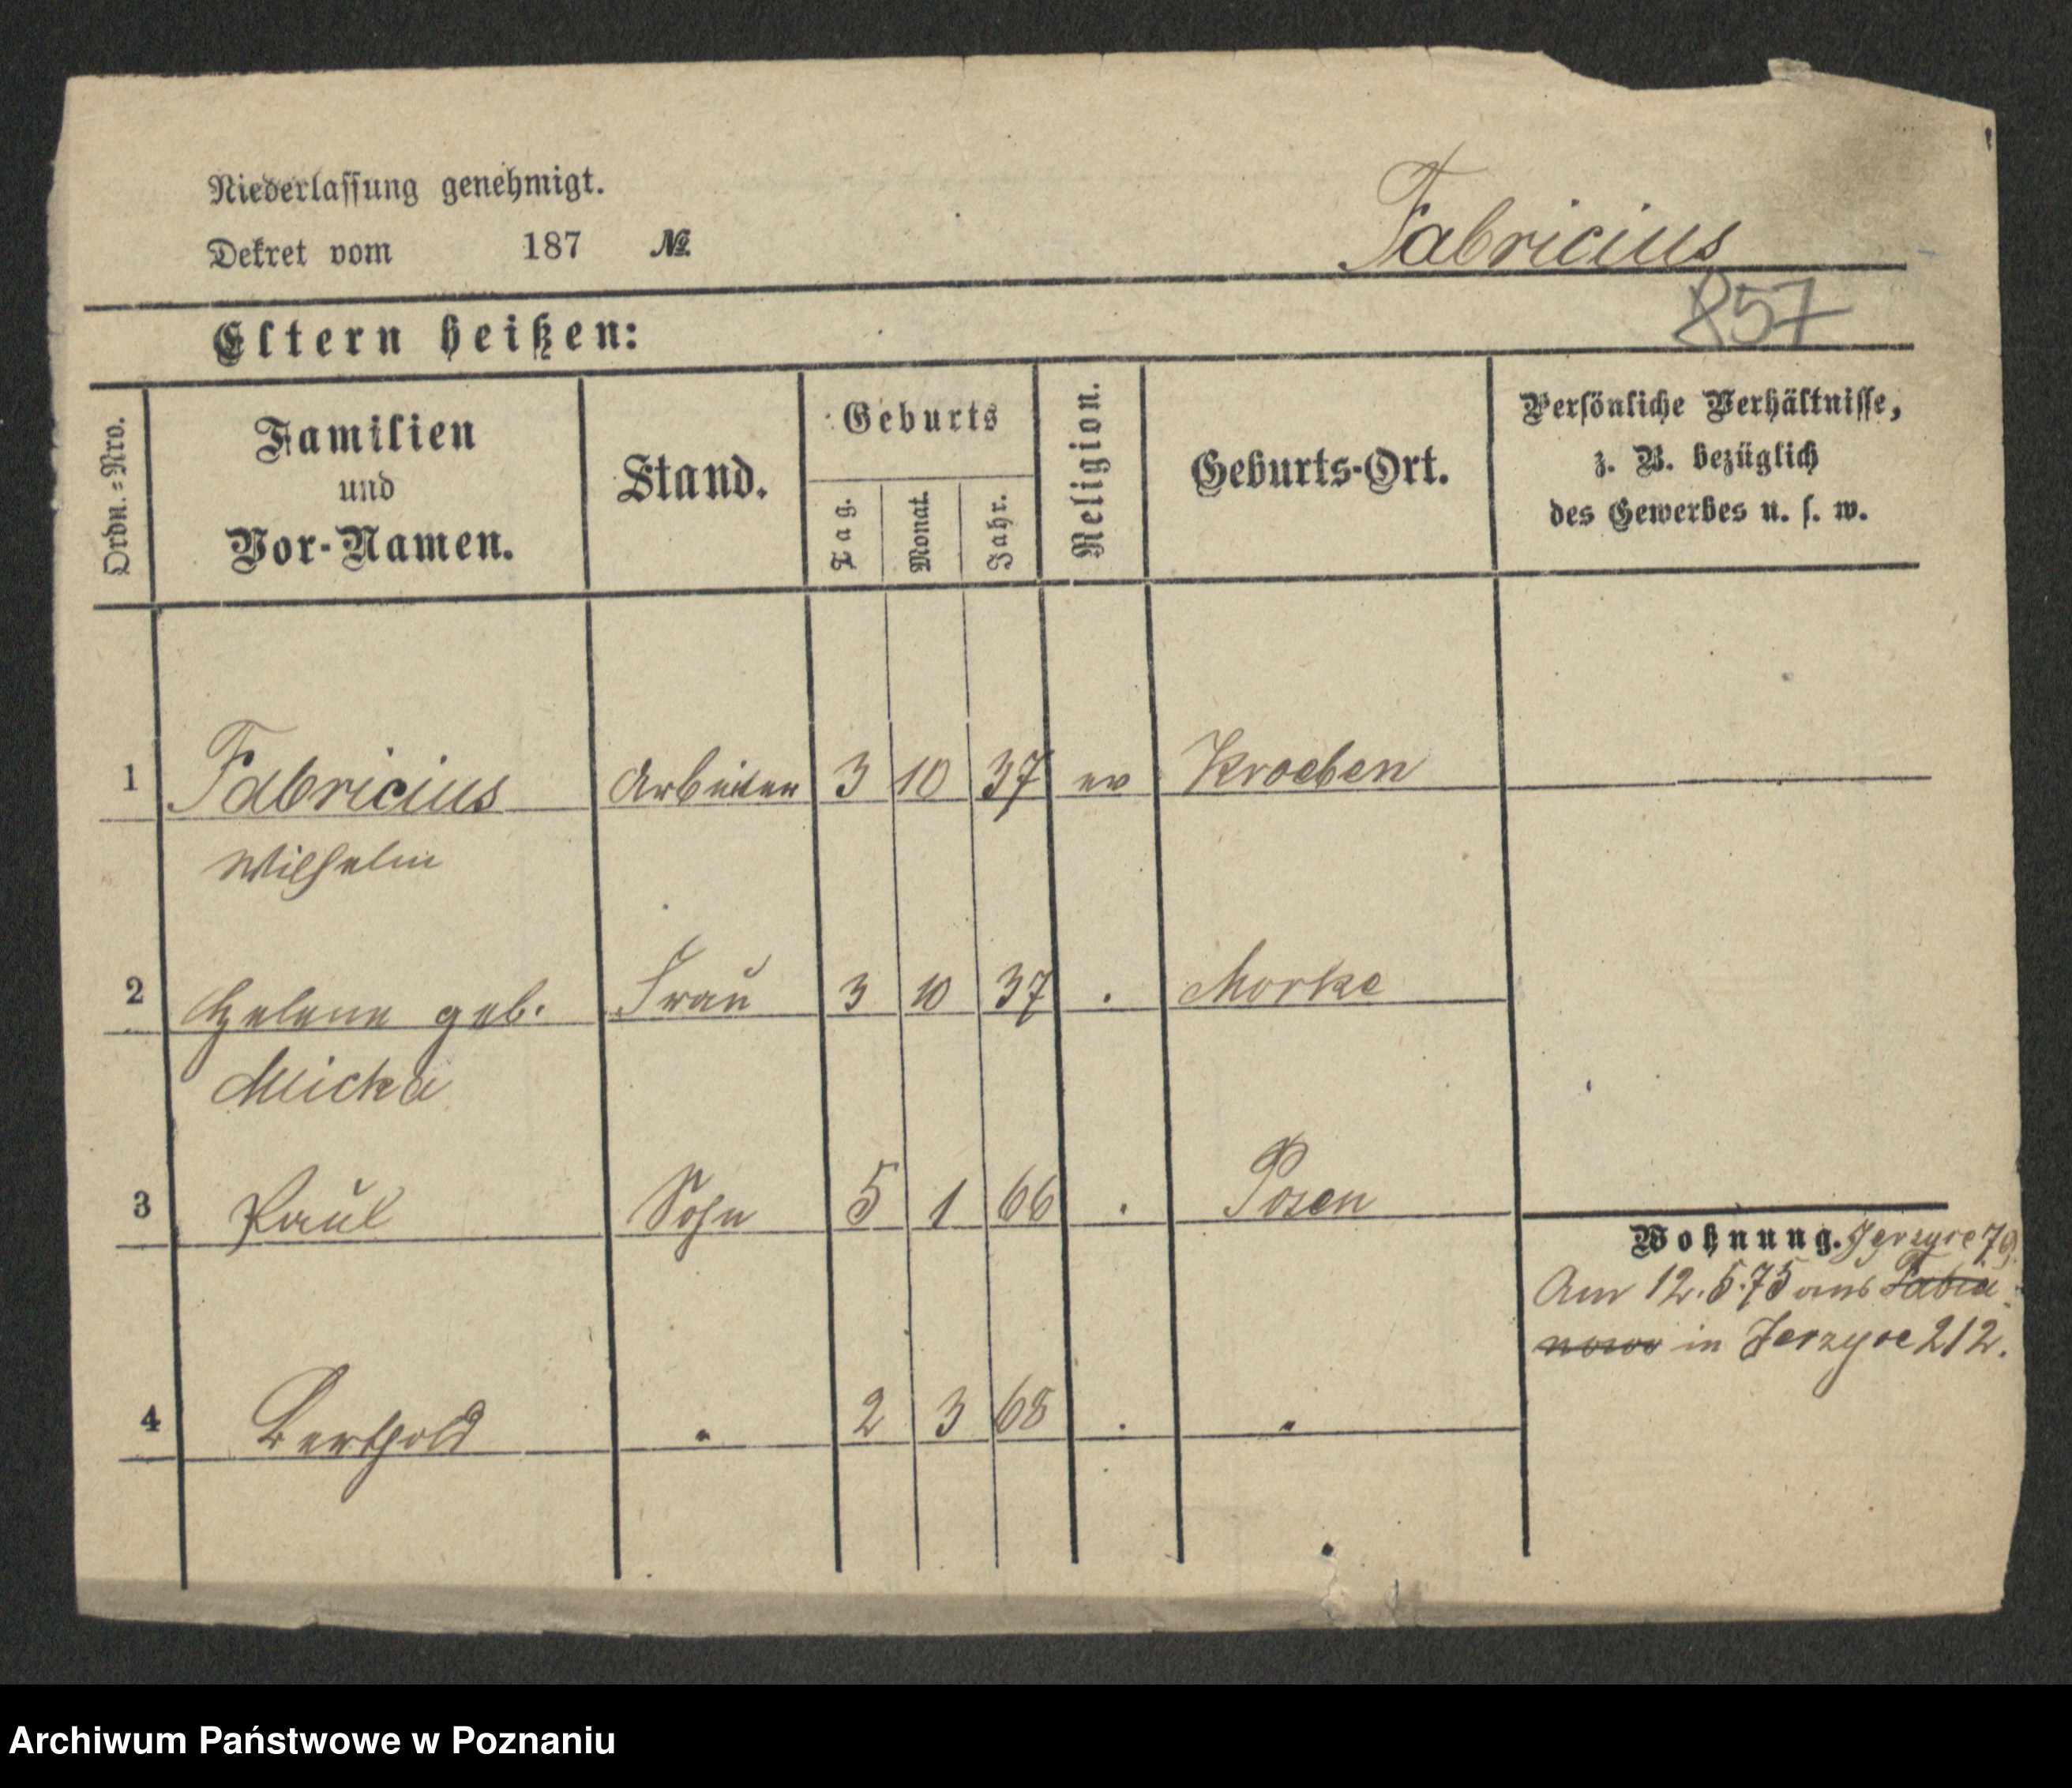 Niederlassung genehmigt.
Dekret vom 187 №
Fabricius
857
Eltern heißen:
Ordn.=Nro.
Familien
und
Vor-Namen.
Stand.
Geburts
Tag.
Monat.
Jahr.
Religion.
Geburts-Ort.
Persönliche Verhältnisse,
z. B. bezüglich
des Gewerbes u. s. w.
1 Fabricius Arbeiter 3 10 37 ev Kroeben
Wilhelm
2 Helene geb. Frau 3 10 37 . Morke
Micka
3 Paul Sohn 5 1 66 . Posen
4 Berthold " 2 3 68 . "
Wohnung. Jerzyce 79.
Am 12.5.75 aus Fabia
nowo in Jerzyce 212.
Archiwum Państwowe w Poznaniu